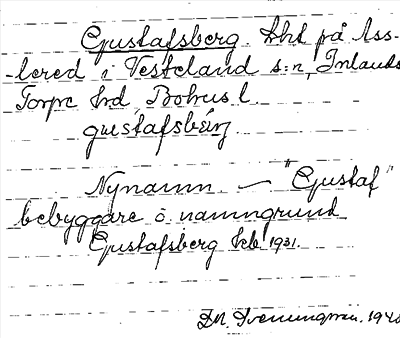 Gustafsberg. lht på Ass-
lered i Västerland s:n, Inlands
Torpe hd, Bohus l.
gustafsbärj
Nynamn — "Gustaf"
bebyggare o. namngrund
Gustafsberg kb 1931.
1940